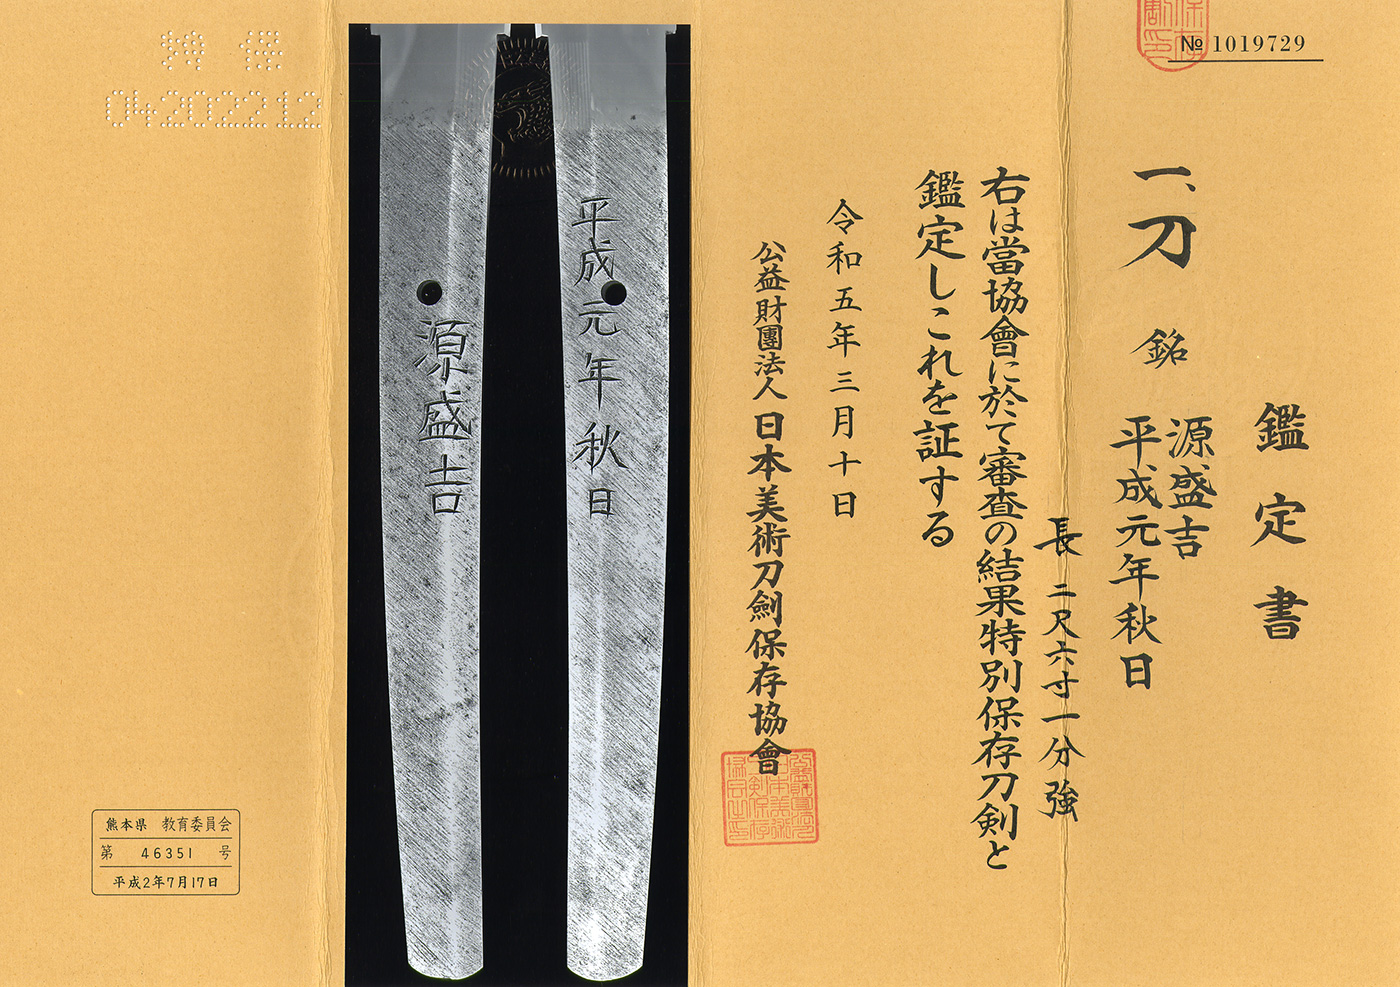 № 1019729
鑑定書
一、刀 銘 源盛吉
平成元年秋日
長 二尺六寸一分強
右は當協會に於て審査の結果特別保存刀剣と
鑑定しこれを証する
令和五年三月十日
公益財團法人日本美術刀劍保存協會
平成元年秋日
源盛吉
04202212
熊本県 教育委員会
第 46351 号
平成2年7月17日